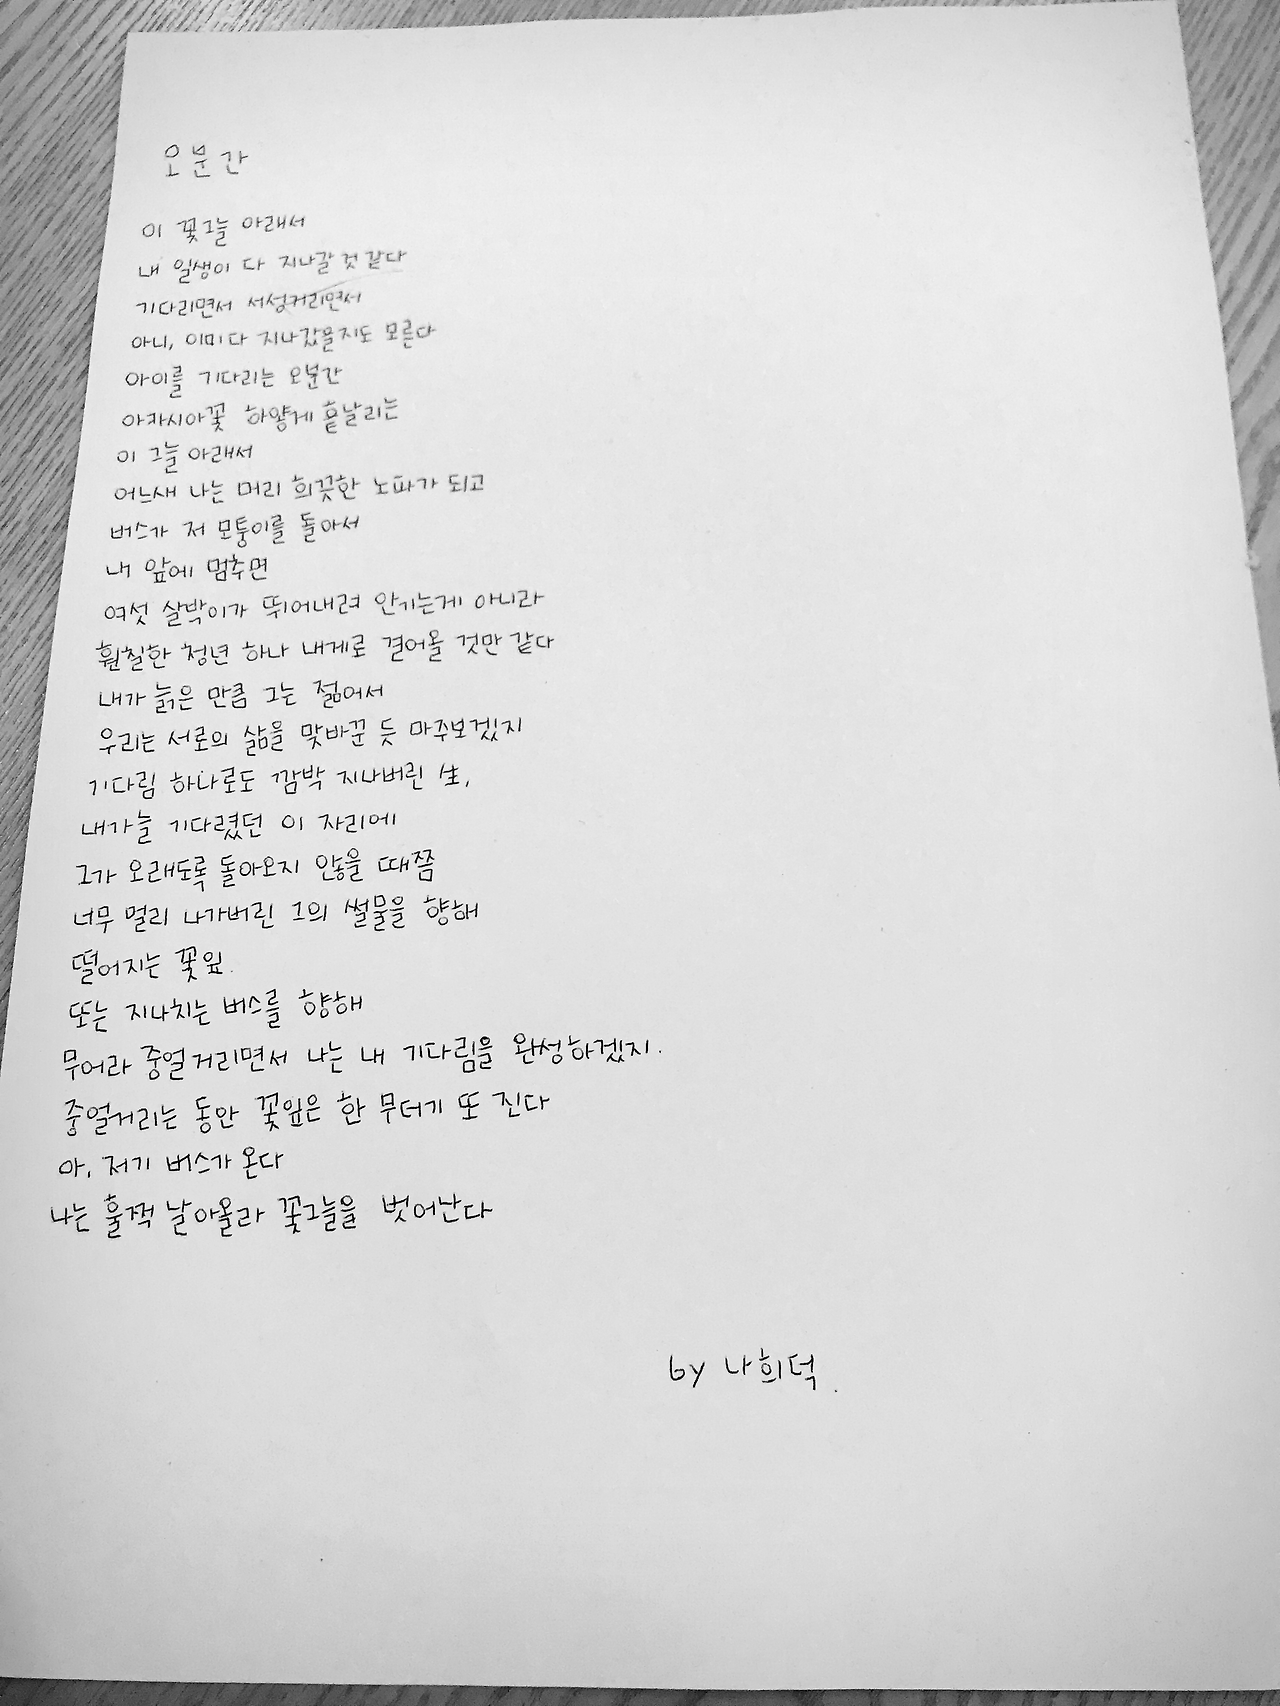 오분간
이 꽃그늘 아래서
내 일생이 다 지나갈 것 같다
기다리면서 서성거리면서
아니, 이미 다 지나갔을지도 모른다
아이를 기다리는 오분간
아카시아꽃 하얗게 흩날리는
이 그늘 아래서
어느새 나는 머리 희끗한 노파가 되고
버스가 저 모퉁이를 돌아서
내 앞에 멈추면
여섯 살박이가 뛰어내려 안기는게 아니라
훤칠한 청년 하나 내게로 걸어올 것만 같다
내가 늙은 만큼 그는 젊어서
우리는 서로의 삶을 맞바꾼 듯 마주보겠지
기다림 하나로도 깜박 지나버린 生,
내가 늘 기다렸던 이 자리에
그가 오래도록 돌아오지 않을 때쯤
너무 멀리 나가버린 그의 썰물을 향해
떨어지는 꽃잎.
또는 지나치는 버스를 향해
무어라 중얼거리면서 나는 내 기다림을 완성하겠지.
중얼거리는 동안 꽃잎은 한 무더기 또 진다
아, 저기 버스가 온다
나는 훌쩍 날아올라 꽃그늘을 벗어난다
by 나희덕.